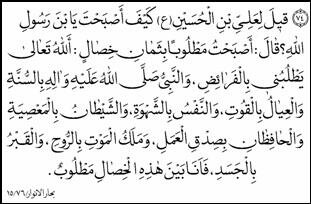 ﴿٧٤﴾ قِيلَ لِعَلِيِّ بْنِ الْحُسَيْنِ (ع) كَيْفَ أَصْبَحْتَ يَا بْنَ رَسُولِ
اللهِ؟ قَالَ: أَصْبَحْتُ مَطْلُوبًا بِثَمَانِ خِصَالٍ: أَللهُ تَعَالَىٰ
يَطْلُبُنِي بِالْفَرَائِضِ، وَالنَّبِيُّ صَلَّى اللهُ عَلَيْهِ وَآلِهِ بِالسُّنَّةِ
وَالْعِيَالُ بِالْقُوتِ، وَالنَّفْسُ بِالشَّهْوَةِ، وَالشَّيْطَانُ بِالْمَعْصِيَةِ
وَالْحَافِظَانِ بِصِدْقِ الْعَمَلِ، وَمَلَكُ الْمَوْتِ بِالرُّوحِ، وَالْقَبْرُ
بِالْجَسَدِ، فَأَنَا بَيْنَ هٰذِهِ الْخِصَالِ مَطْلُوبٌ.
بحار الانوار ٧٦/١٥